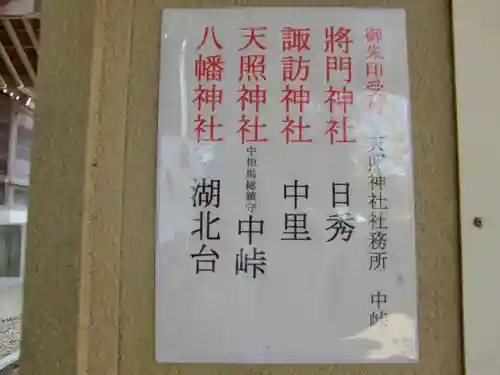 御朱印受付 天照神社社務所 中峠
將門神社 日秀
諏訪神社 中里
天照神社 中相馬総鎮守 中峠
八幡神社 湖北台